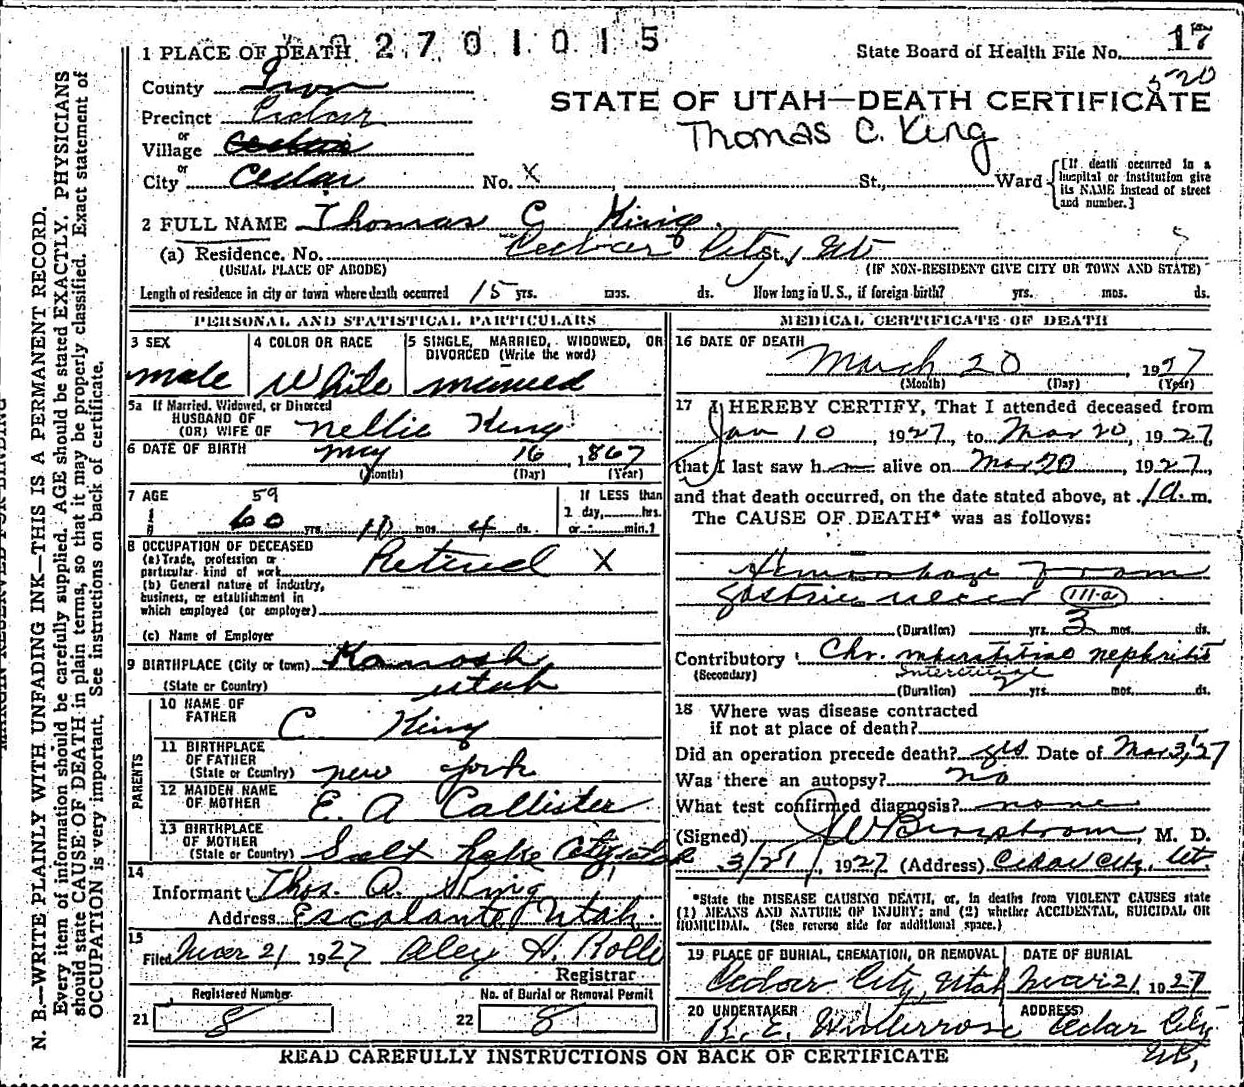 2701015
1 PLACE OF DEATH
State Board of Health File No. 17
520
County Iron
STATE OF UTAH—DEATH CERTIFICATE
Precinct Cedar
Thomas C. King
or
Village
or
City Cedar No. X St., Ward
[If death occurred in a hospital or institution give its NAME instead of street and number.]
2 FULL NAME Thomas C King
(a) Residence. No. Cedar City St., Ut
(USUAL PLACE OF ABODE) (IF NON-RESIDENT GIVE CITY OR TOWN AND STATE)
Length of residence in city or town where death occurred 15 yrs. mos. ds. How long in U. S., if foreign birth? yrs. mos. ds.
PERSONAL AND STATISTICAL PARTICULARS
3 SEX
male
4 COLOR OR RACE
White
5 SINGLE, MARRIED, WIDOWED, OR DIVORCED (Write the word)
married
5a If Married, Widowed, or Divorced
HUSBAND OF
(OR) WIFE OF Nellie King
6 DATE OF BIRTH May 16, 1867
(Month) (Day) (Year)
7 AGE
59
60 yrs. 10 mos. 4 ds.
If LESS than
1 day, hrs.
or min.?
8 OCCUPATION OF DECEASED
(a) Trade, profession or
particular kind of work Retired X
(b) General nature of industry,
business, or establishment in
which employed (or employer)
(c) Name of Employer
9 BIRTHPLACE (City or town) Kanosh
(State or Country) Utah
PARENTS
10 NAME OF
FATHER C King
11 BIRTHPLACE
OF FATHER
(State or Country) New York
12 MAIDEN NAME
OF MOTHER E. A Callister
13 BIRTHPLACE
OF MOTHER
(State or Country) Salt Lake City, Utah
14
Informant Thos. A. King
Address Escalante Utah.
15
Filed Mar 21 1927
Registrar
Registered Number
21 8
No. of Burial or Removal Permit
22 8
MEDICAL CERTIFICATE OF DEATH
16 DATE OF DEATH
March 20 1927
(Month) (Day) (Year)
17 I HEREBY CERTIFY, That I attended deceased from
Jan 10, 1927, to Mar 20, 1927,
that I last saw him alive on Mar 20, 1927,
and that death occurred, on the date stated above, at 1 a.m.
The CAUSE OF DEATH* was as follows:
Hemorrhage from
gastric ulcer 111-a
(Duration) yrs. 3 mos. ds.
Contributory Chr. interstitial nephritis
(Secondary) Interstitial
(Duration) 2 yrs. mos. ds.
18 Where was disease contracted
if not at place of death?
Did an operation precede death? yes Date of Mar 3, '27
Was there an autopsy? no
What test confirmed diagnosis? none
(Signed) J W Bergstrom, M. D.
3/21, 1927 (Address) Cedar City, Ut
*State the DISEASE CAUSING DEATH, or, in deaths from VIOLENT CAUSES state
(1) MEANS AND NATURE OF INJURY; and (2) whether ACCIDENTAL, SUICIDAL OR
HOMICIDAL. (See reverse side for additional space.)
19 PLACE OF BURIAL, CREMATION, OR REMOVAL
Cedar City, Utah
DATE OF BURIAL
Mar 21, 1927
20 UNDERTAKER
ADDRESS
Cedar City
Ut,
READ CAREFULLY INSTRUCTIONS ON BACK OF CERTIFICATE
N. B.—WRITE PLAINLY WITH UNFADING INK—THIS IS A PERMANENT RECORD.
Every item of information should be carefully supplied. AGE should be stated EXACTLY. PHYSICIANS
should state CAUSE OF DEATH in plain terms, so that it may be properly classified. Exact statement of
OCCUPATION is very important. See instructions on back of certificate.